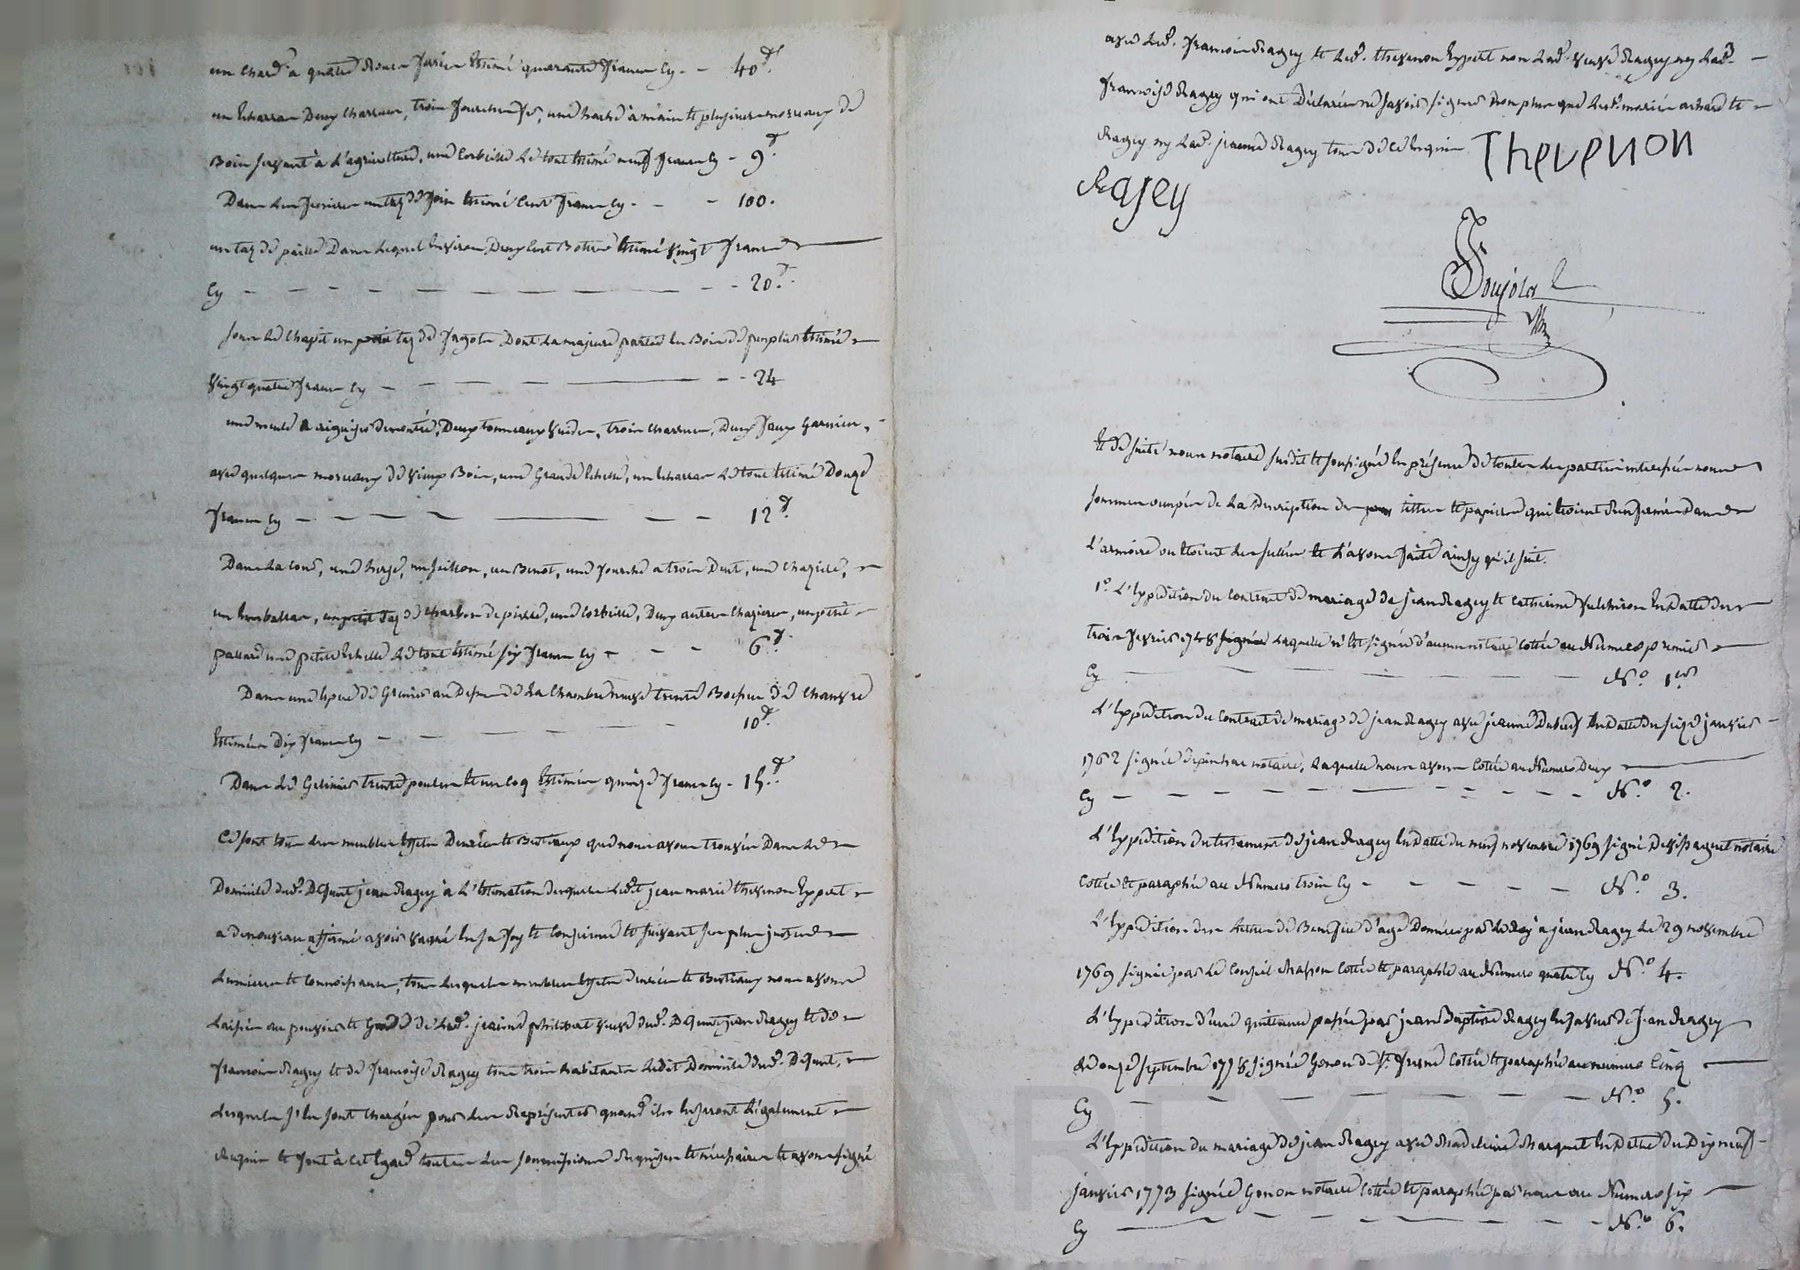 un char a quatre Roues ferré Estimé quarante francs Cy - - 40 f.
un charras Deux charrues, trois fourches fer, une hache à main et plusieurs morceaux de
Bois servant à L'agriculture, une corbeille Le tout Estimé neuf francs Cy - 9 f.
Dans Les fenières un taz de foin Estimé Cent francs Cy - - 100.
un taz de paille Dans Lequel Environ Deux Cent Bottes Estimé vingt francs
Cy - - - - - - - - 20 f.
sous Le Chapit un petit taz de fagots Dont La majeure partie En Bois de peuplier Estimé
vingt quatre francs Cy - - - - - - 24
une meule a aiguiser démontée, Deux tonneaux vuides, trois charrues, Deux faux Garnies,
avec quelques morceaux de vieux Bois, une Grande Echelle, un charras Le tout Estimé Douze
francs Cy - - - - - - - 12 f.
Dans La Cour, une herse, un, un Benot, une fourche a trois Dent, une,
un, un petit taz de charbon de pierre, une Corbeille, Deux autres, un petit
une petite Echelle Le tout Estimé six francs Cy - - - 6 f.
Dans une Espece de Grenier au Dessus de La Chambre neuve trente de chanvre
Estimées Dix francs Cy - - - - - 10 f.
Dans Le Gelinier trente poules et un Coq Estimées quinze francs Cy - 15 f.
Ce sont tous Les meubles Effets Denrées et Bestiaux que nous avons trouvés Dans Le
Domicile dud. Défunt jean Ragey à L'Estimation desquels Ledit jean marie thevenon Expert
a de nouveau affirmé avoir vaqué En Sa foy et Conscience et suivant ses plus justes
Lumieres et Connoissances, tous Lesquels meubles Effets denrées et Bestiaux nous avons
Laissés au pouvoir et Garde de Lad. jeanne philibert veuve dud. Défunt jean Ragey et de
francois Ragey et de francoise Ragey tous trois habitants Ledit Domicile dud. Défunt,
Lesquels s'En sont chargés pour Les Représenter quand ils En seront Légalement
Requis et font à cet Egard toutes Les soumissions Requises et nécessaires et avons signé
avec Led. francois Ragey et Led. thevenon Expert non Lad. veuve Ragey ny Lad.
francoise Ragey qui ont Déclarées ne savoir signer non plus que Les mariés achard et
Ragey ny Lad. jeanne Ragey tous de ce Enquis Thevenon
Ragey
Et de suite nous notaire susdit et soussigné En présence de toutes Les parties interessées nous
sommes occupés de La Description des titres et papiers qui Etoient Renfermés Dans
L'armoire ou Etoient Les scellés Et L'avons faite ainsy qu'il suit.
1° L'Expédition du Contrat de mariage de jean Ragey et Catherine En datte du
trois fevrier 1748 Laquelle n'Est signée d'aucun notaire Cottée au Numero premier
Cy - - - - - - N.° 1er
L'Expédition du Contrat de mariage de jean Ragey avec jeanne Dubeuf En datte du seize janvier
1762 signée notaire, Laquelle nous avons Cottée au Numero Deux
Cy - - - - - - - - - - N.° 2.
L'Expédition du testament de jean Ragey En datte du neuf novembre 1769 signé notaire
Cottée et paraphée au Numero trois Cy - - - - - - N.° 3.
L'Expédition des Lettres de Benefice d'age Données par Le Roy a jean Ragey Le 29 novembre
1769 signée par Le Conseil Masson Cottée et paraphée au Numero quatre Cy N.° 4.
L'Expédition d'une quittance passée par jean Baptiste Ragey En faveur de jean Ragey
Le onze septembre signée Gonon de St. fresne Cottée et paraphée au numero Cinq
Cy - - - - - - - N.° 5.
L'Expédition du mariage de jean Ragey avec Madeleine Marquet En Datte du Dix neuf
janvier 1773 signée Gonon notaire Cottée et paraphée par nous au Numero six
Cy - - - - - - - N.° 6.